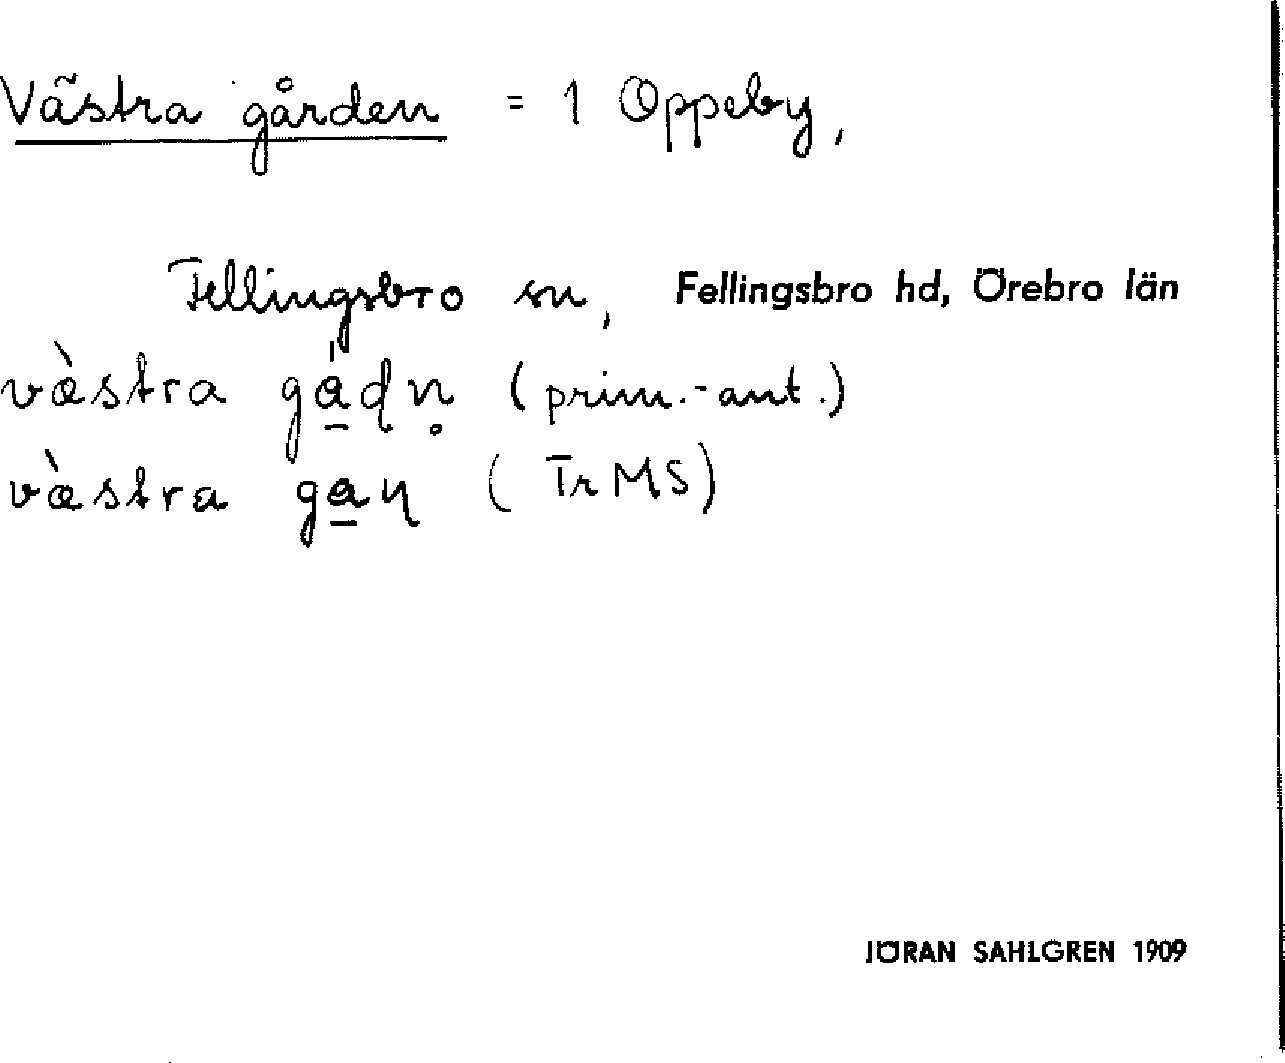 Västra gården = 1 Oppeby,
Fellingsbro sn, Fellingsbro hd, Örebro län
væ̀stra gá̱dn̥ (prim.-ant.)
væ̀stra ga̱ɳ (Tr MS)
JÖRAN SAHLGREN 1909